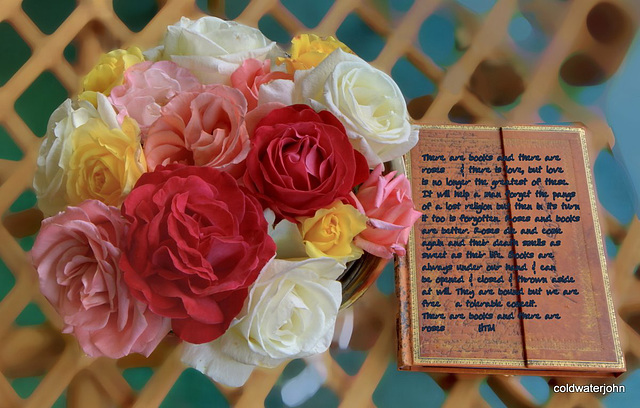 There are books and there are
roses & there is love, but love
is no longer the greatest of these.
It will help a man forget the pangs
of a lost religion but then in its turn
it too is forgotten. Roses and books
are better. Roses die and come
again and their death smells as
sweet as their life. Books are
always under our hand & can
be opened & closed & thrown aside
at will. They are bound but we are
free a tolerable conceit.
There are books and there are
roses HTM
coldwaterjohn